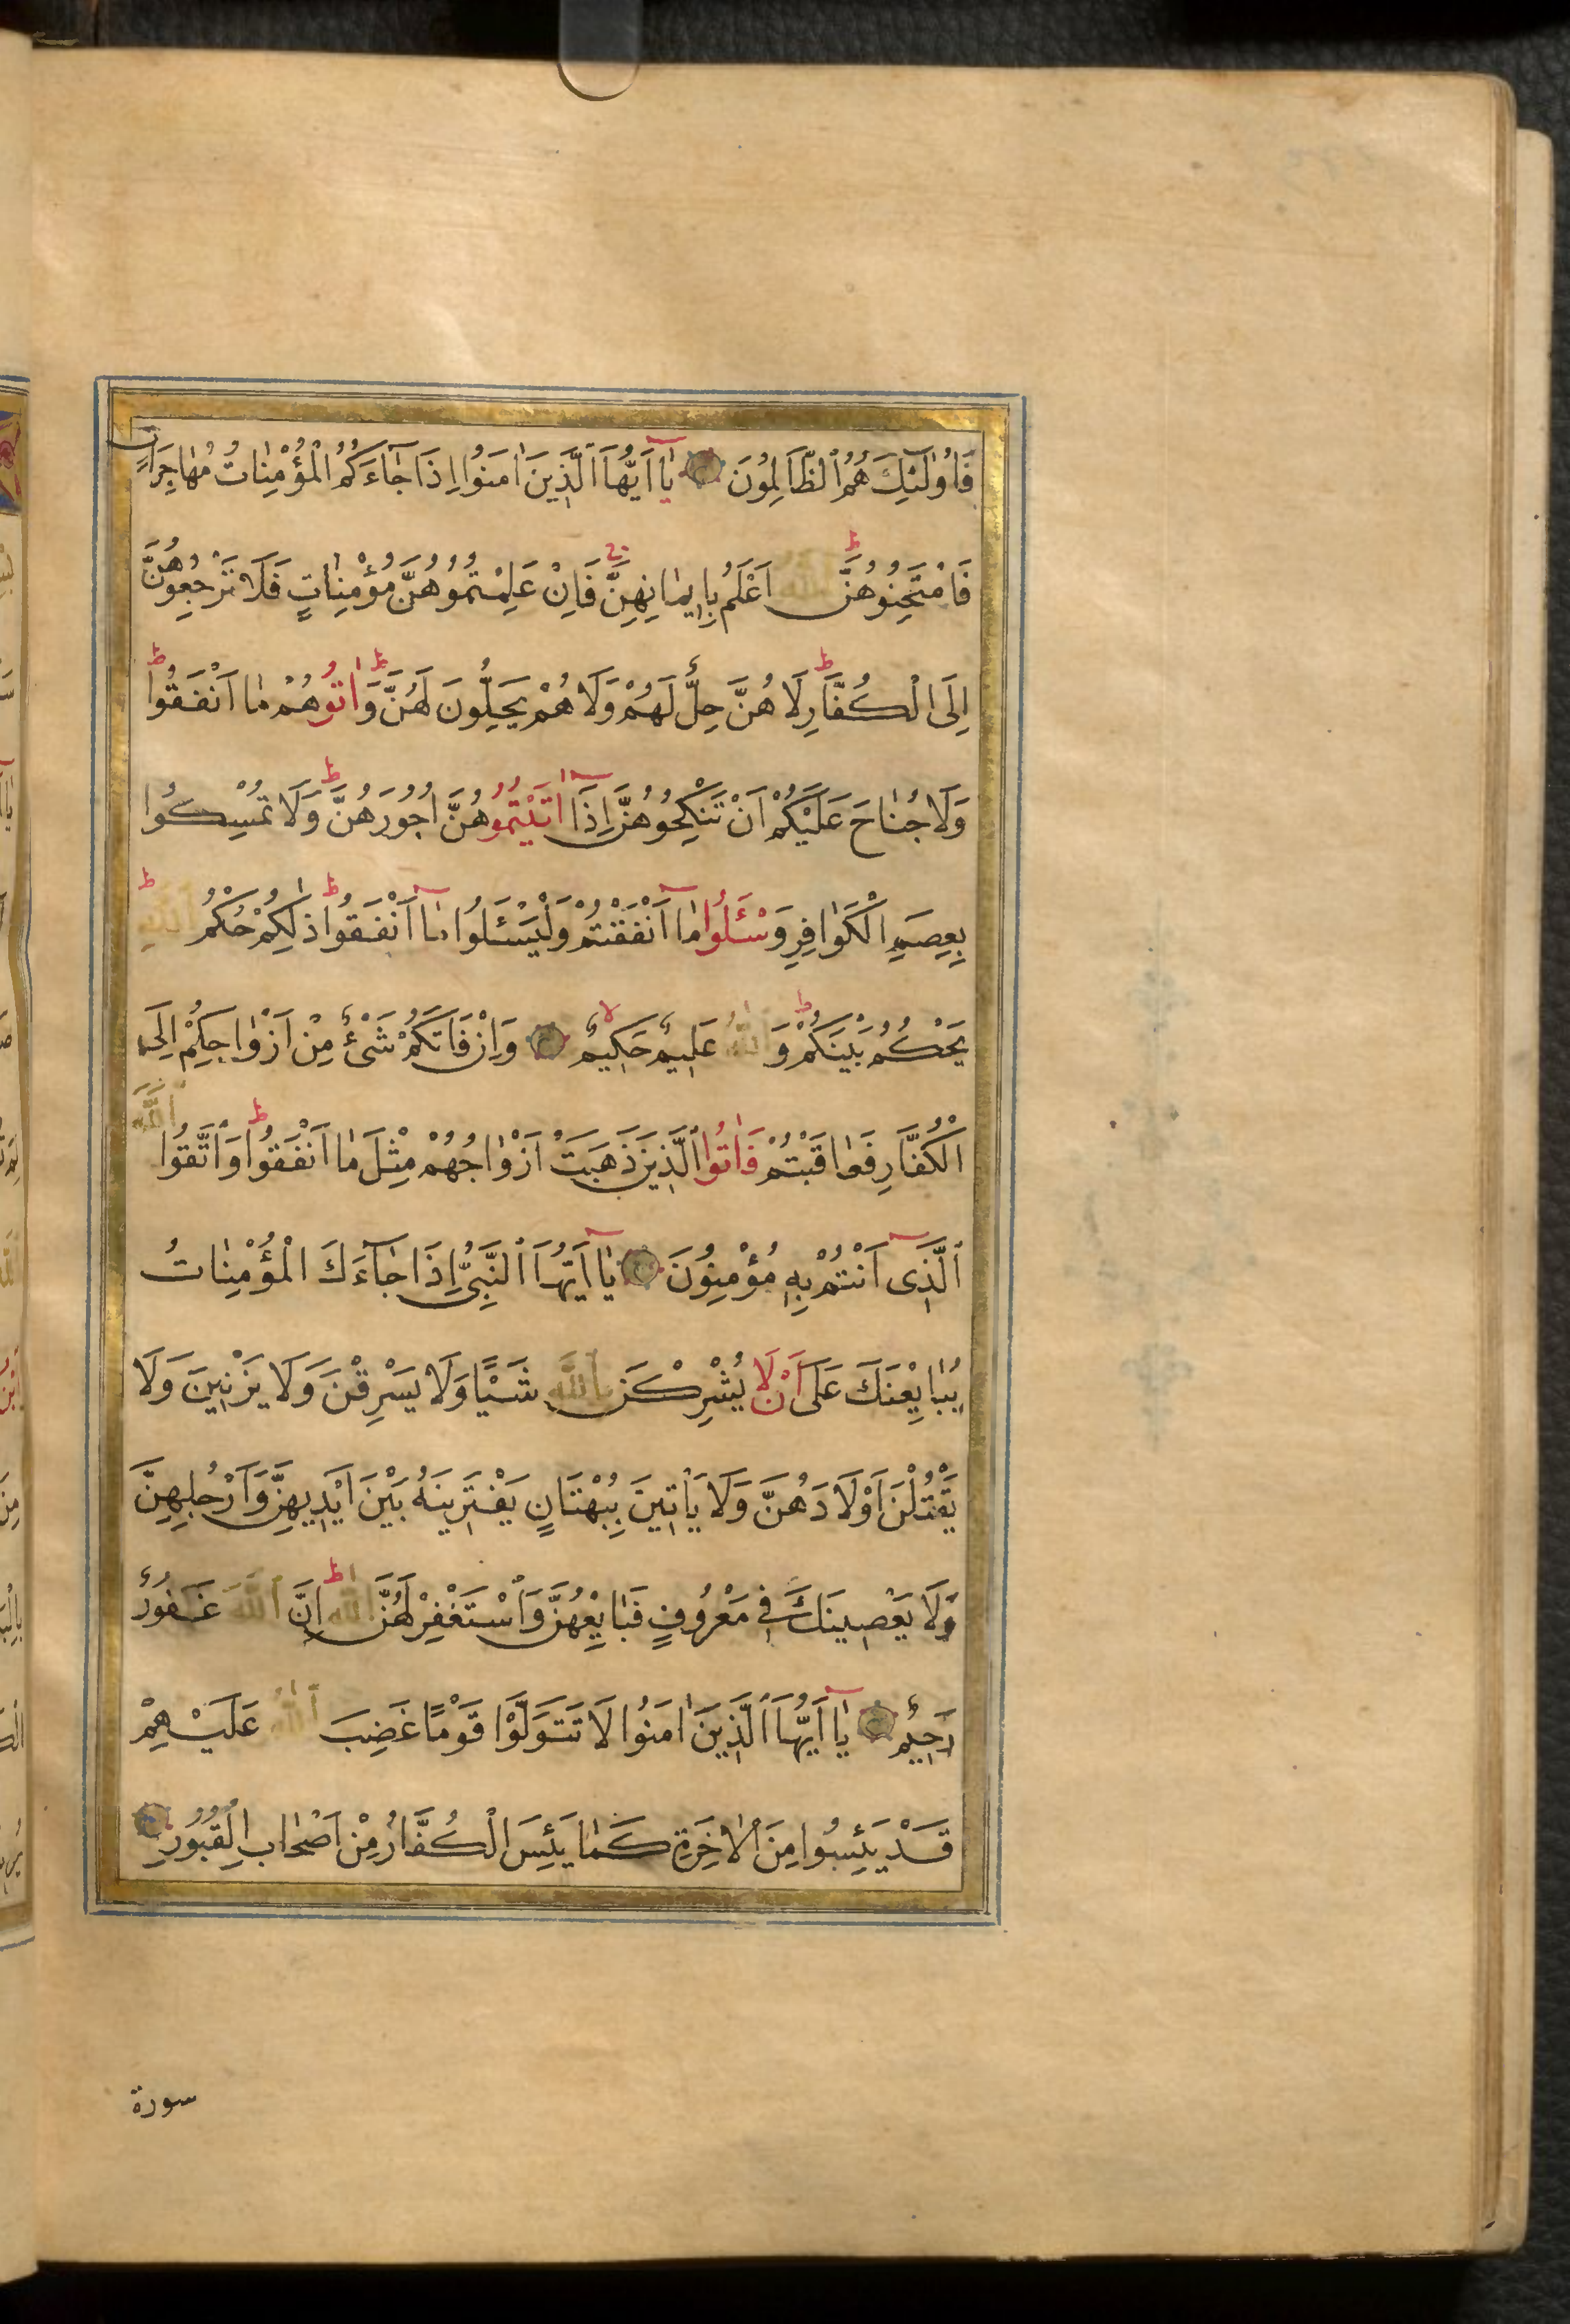 فَاُولٰٓئِكَ هُمُ ٱلظَّالِمُونَ يٰٓا اَيُّهَا ٱلَّذِينَ اٰمَنُوا اِذَا جَٓاءَكُمُ الْمُؤْمِنٰاتُ مُهٰاجِرٰاتٍ
فَامْتَحِنُوهُنَّ ط اَللّٰهُ اَعْلَمُ بِاِيمٰانِهِنَّ ج فَاِنْ عَلِمْتُمُوهُنَّ مُؤْمِنٰاتٍ فَلَا تَرْجِعُوهُنَّ
اِلَى الْكُفَّارِ ط لَا هُنَّ حِلٌّ لَهُمْ وَلَا هُمْ يَحِلُّونَ لَهُنَّ ط وَاٰتُوهُمْ مٰا اَنْفَقُوا ط
وَلَا جُنٰاحَ عَلَيْكُمْ اَنْ تَنْكِحُوهُنَّ اِذَٓا اٰتَيْتُمُوهُنَّ اُجُورَهُنَّ ط وَلَا تُمْسِكُوا
بِعِصَمِ الْكَوٰافِرِ وَسْـَٔلُوا مٰٓا اَنْفَقْتُمْ وَلْيَسْـَٔلُوا مٰٓا اَنْفَقُوا ط ذٰلِكُمْ حُكْمُ اللّٰهِ ط
يَحْكُمُ بَيْنَكُمْ ط وَاللّٰهُ عَلِيمٌ حَكِيمٌ لا وَاِنْ فَاتَكُمْ شَىْءٌ مِنْ اَزْوٰاجِكُمْ اِلَى
الْكُفَّارِ فَعٰاقَبْتُمْ فَاٰتُوا ٱلَّذِينَ ذَهَبَتْ اَزْوٰاجُهُمْ مِثْلَ مٰا اَنْفَقُوا ط وَٱتَّقُوا ٱللّٰهَ
ٱلَّذِىٓ اَنْتُمْ بِهِ مُؤْمِنُونَ يٰٓا اَيُّهَا ٱلنَّبِىُّ اِذَا جَٓاءَكَ الْمُؤْمِنٰاتُ
يُبٰايِعْنَكَ عَلَى اَنْ لَا يُشْرِكْنَ بِاللّٰهِ شَيْـًٔا وَلَا يَسْرِقْنَ وَلَا يَزْنِينَ وَلَا
يَقْتُلْنَ اَوْلَادَهُنَّ وَلَا يَاْتِينَ بِبُهْتَانٍ يَفْتَرِينَهُ بَيْنَ اَيْدِيهِنَّ وَاَرْجُلِهِنَّ
وَلَا يَعْصِينَكَ فِى مَعْرُوفٍ فَبٰايِعْهُنَّ وَٱسْتَغْفِرْ لَهُنَّ اللّٰهَ ط اِنَّ ٱللّٰهَ غَفُورٌ
رَحِيمٌ يٰٓا اَيُّهَا ٱلَّذِينَ اٰمَنُوا لَا تَتَوَلَّوْا قَوْمًا غَضِبَ ٱللّٰهُ عَلَيْهِمْ
قَدْ يَئِسُوا مِنَ الْاٰخِرَةِ كَمٰا يَئِسَ الْكُفَّارُ مِنْ اَصْحٰابِ الْقُبُورِ
سورة